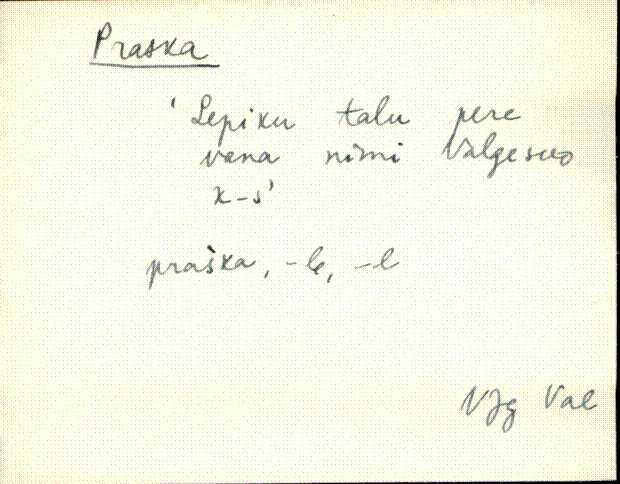 Praska
‘Lepiku talu pere
vana nimi Valgesoo
k-s’
praška, -le, -l
VJg Val